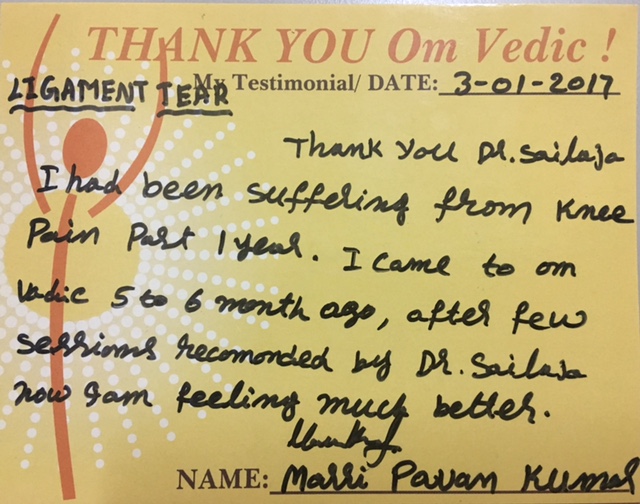 THANK YOU Om Vedic !
My Testimonial/ DATE: 3-01-2017
LIGAMENT TEAR
Thank you Dr. Sailaja
I had been suffering from Knee
Pain Past 1 year. I came to om
Vedic 5 to 6 month ago, after few
sessions recomonded by Dr. Sailaja
now I am feeling much better.
NAME: Malli Pavan Kumar